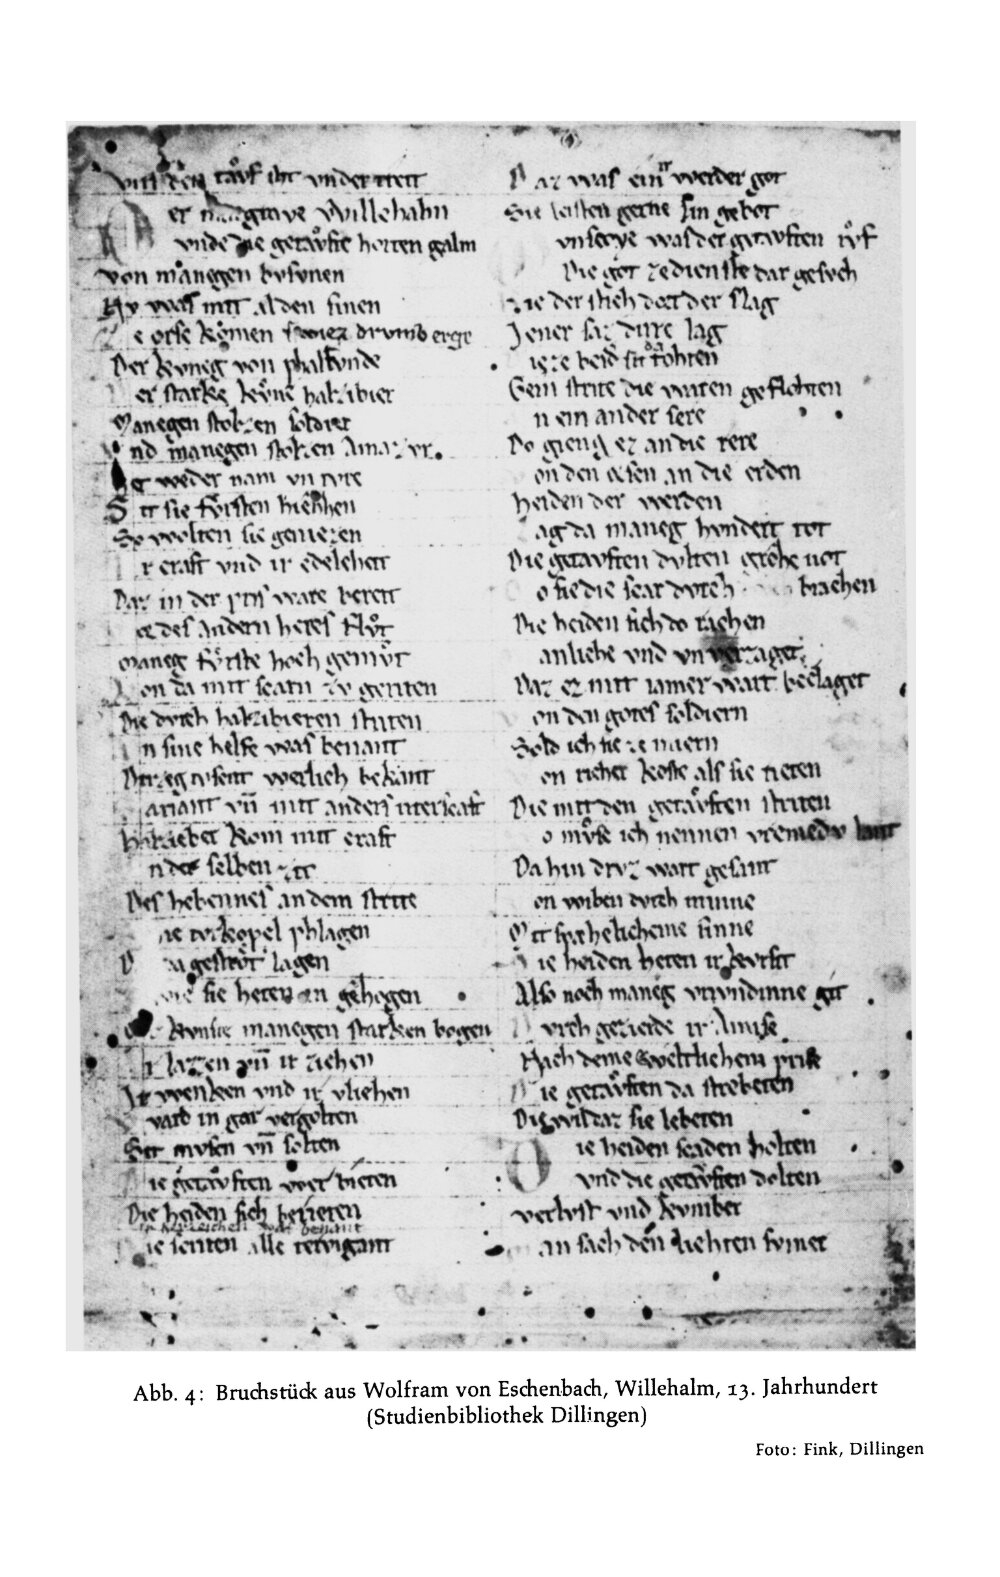 den tavf iht vnder treit
er margrave Willehalm
vnde die getavfte horten galm
von manegen bvsvnen
Ny was mit al den sinen
e orse komen
Der kvneg von phalfvnde
er starke kvne halzibier
Manegen stolzen soldier
nd manegen stolzen Amazvr
weder nam vn tvre
Sit sie fvrsten hiezhen
So wolten sie geniezen
r craft vnd ir edelcheit
Daz in der pris ware bereit
des andern heres flvt
maneg fvrste hoch gemvt
on da mit scarn zv geriten
Die dvrch halzibieren striten
n sine helfe was benant
Drizeg tvsent werlich bekant
ariant vn mit anders riterscaft
halziebier kom mit craft
n der selben zit
Des hebennes an dem strite
ie tvrkopel phlagen
lagen
sie heten an gehogen
kvnste manegen starken bogen
r lazzen vn ir ziehen
Ir wenken vnd ir vliehen
vard in gar vergolten
Sit mvsen vn solten
ie getavften wer bieten
Die heiden sich berieten
ie seriten alle tervigant
Daz was ein werder got
Sie leisten gerne sin gebot
vnseoye was der getavften rvf
Die got ze dienste dar gescvh
ie der stich dort der slag
Jener saz dirre lag
ieze beid sit tohten
Gein strite die waren geflohten
n ein ander sere
Do gieng ez an die rere
on den orsen an die erden
heiden der werden
ag da maneg hvndert tot
Die getavften dvlten groze not
o sie die scar dvrch brachen
Die heiden sich do rachen
an liebe vnd vn verzaget
Daz ez mit iamer wart beclaget
on den gotes soldiern
Sold ich sie ze mern
on richer koste als sie tieten
Die mit den getavften striten
o mvse ich nennen vremedv lant
Da hin dvrz wart gesant
on wiben dvrch minne
Mit spehelicheme sinne
ie heiden heten ir kvrsit
Also noch maneg vrivndinne git
vrch gezierde ir Amise
Nach deme weltlichem prise
ie getavften da strebeten
Die wil daz sie lebeten
ie heiden scaden holten
vnd die getavften dolten
verlvst vnd kvmber
an sach den liehten svmer
Abb. 4: Bruchstück aus Wolfram von Eschenbach, Willehalm, 13. Jahrhundert
(Studienbibliothek Dillingen)
Foto: Fink, Dillingen